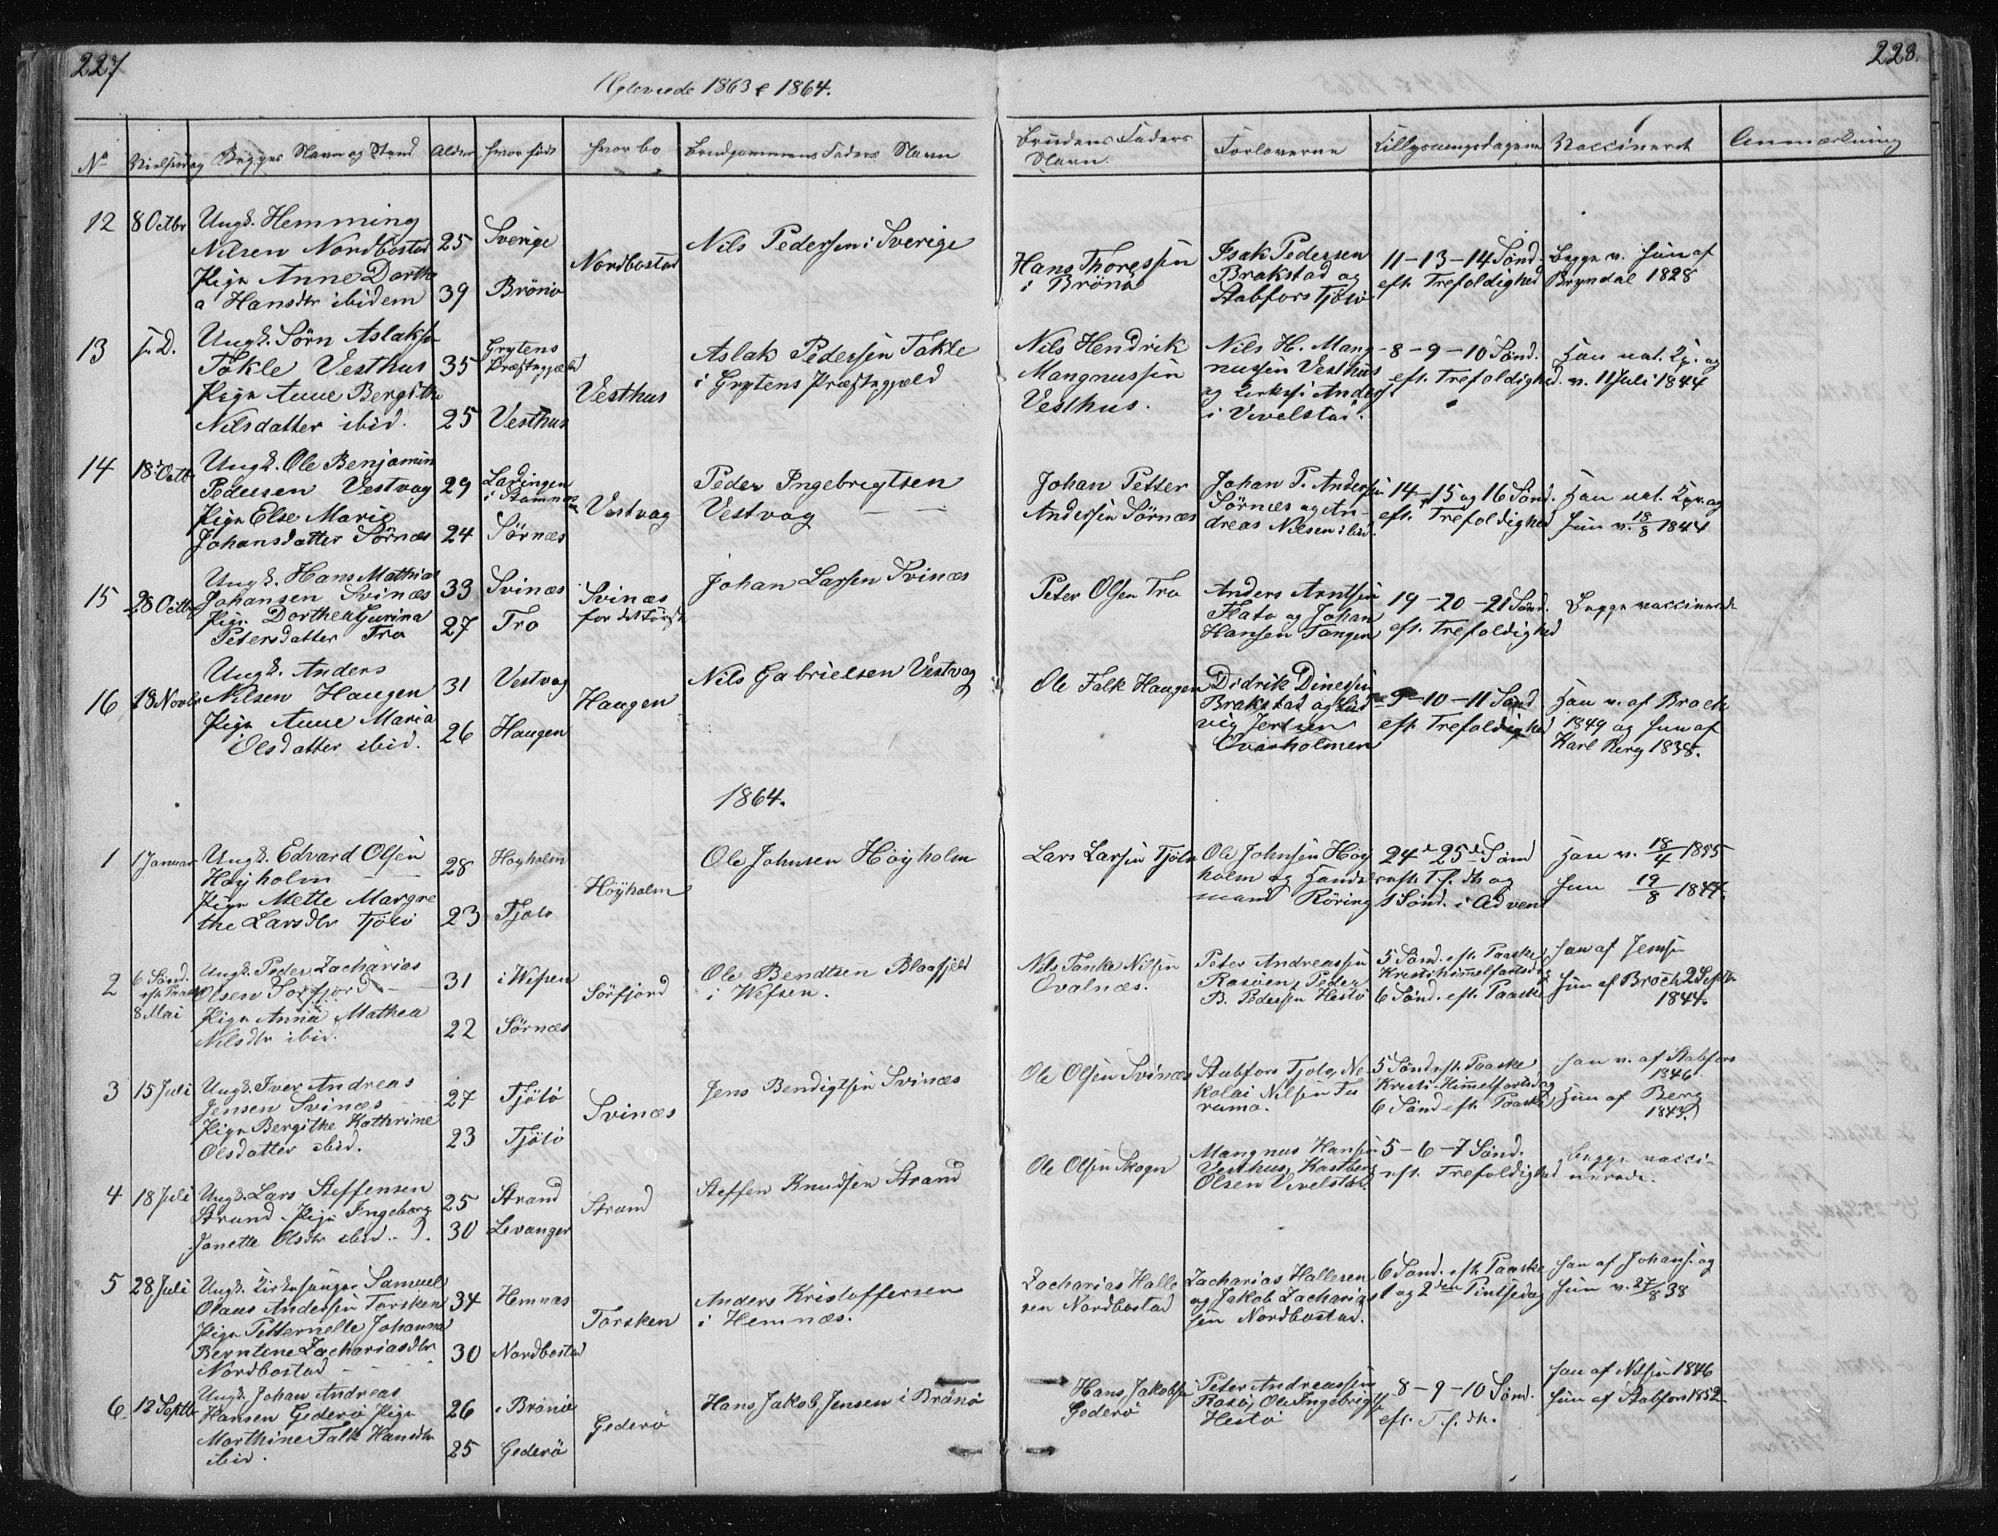 227
228.
Ægteviede 1863 & 1864.
No Vielsesdag Begges Navn og Stand Alder hvor født hvor bo Brudgommens Faders Navn
Brudens Faders Navn. Forloverne Tillysningsdagene Vaccineret Anmærkning
12 8 Octbr Ungk. Hemming
Nilsen Nordbostad 25 Sverige
Pige Anne Dorthe
a Hansdtr ibidem 39 Brönö
Nordbostad
Nils Pedersen i Sverige
Hans Thoressen
i Brönö
Isak Pedersen
Brakstad og
Aabfors Tjötö
11-13-14 Sönd.
eft. Trefoldighed
Begge v. hun af
Bryndal 1828
13 s. D. Ungk. Sörn Aslaksen
Tökle Vesthus 35 Grytens
Præstegjæld
Pige Anne Bergithe
Nilsdatter ibid. 25 Vesthus
Vesthus
Aslak Pedersen Tökle
i Grytens Præstegjæld
Nils Hendrik
Mangnussen
Vesthus.
Nils H. Mang
nussen Vesthus
og Anders
i Vevelstad.
8-9-10 Sönd.
eft. Trefoldighed.
Han nat. Kp. og
v. 11 Juli 1844
14 18 Octb Ungk. Ole Benjamin
Pedersen Vestvag 29 Lødingen
i
Pige Else Marie
Johansdatter Sörnæs 24 Sörnæs
Vestvag
Peder Ingebrigtsen
Vestvag
Johan Petter
Andersen Sörnæs
Johan P. Andersen
Sörnæs og An-
dreas Nilsen ibid.
14-15 og 16 Sönd.
eft. Trefoldighed
Han nat. Kp. og
hun v. 18/8 1844
15 28 Octbr Ungk. Hans Mathias
Johansen Svinæs 33 Svinæs
Pige Dorthea Gurina
Petersdatter Tro 27 Tro
Svinæs
for det første
Johan Larsen Svinæs
Peter Olsen Tro
Anders Arntsen
Flato og Johan
Hansen Tangen
19-20-21 Sönd.
eft. Trefoldighed
Begge vaccinerede
16 18 Novbr Ungk. Anders
Nilsen Haugen 31 Vestvag
Pige Anne Maria
Olsdatter ibid. 26 Haugen
Haugen
Nils Gabrielsen Vestvag
Ole Falk Haugen
Didrik Dinessen
Brakstad og Lud
vig Jertsen
Qvasholmen
9-10-11 Sönd
eft. Trefoldighed
Han v. af Broch
1849 og hun af
Karl Berg 1838.
1864.
1 1 Januar Ungk. Edvard Olsen
Höyholm 28 Höyholm
Pige Mette Margre
the Larsdtr Tjötö 23 Tjötö
Höyholm
Ole Johnsen Höyholm
Lars Larsen Tjötö
Ole Johnsen Höy
holm og Handels
mand Röring
24de 25de Sönd
eft. T.f.dh og
1 Sönd. i Advent
Han v. 18/4 1855
hun 19/8 1844.
2 6 Sönd.
eft. Paaske
8 Mai
Ungk. Peder Zacharias
Olsen Sörfjord 31 i Wefsen
Pige Anna Mathea
Nilsdtr ibid. 22 Sörnæs
Sörfjord
Ole Bendtsen Blaafjeld
i Wefsen.
Nils Tanke Nilsen
Qvalnæs.
Peter Andreassen
Rosöen, Peder
B. Pedersen Hestö
5 Sönd. eft. Paaske,
Kristi himmelfartsdag
6 Sönd. eft. Paaske
Han af Jensen
hun af Broch 2 Septbr
1844.
3 15 Juli Ungk. Iver Andreas
Jensen Svinæs 27 Tjötö
Pige Bergithe Kathrine
Olsdatter ibid. 23 Tjötö
Svinæs
Jens Bendigtsen Svinæs
Ole Olsen Svinæs
Aabfors Tjötö, Ni-
kolai Nilsen Fu
rumo.
5 Sönd eft. Paaske,
Kristi Himmelfartsdag
6 Sönd eft. Paaske
Han v. af Aabfors
1846.
Hun af Berg
1843
4 18 Juli Ungk. Lars Steffensen
Strand. Pige Ingeborg 25 Strand
Janette Olsdtr ibid. 30 Levanger
Strand
Steffen Knudsen Strand
Ole Olsen Skogn
Mangnus Hansen
Vesthus, Kastberg
Olsen Vevelstad.
5-6-7 Sönd.
eft. Trefoldighed
Begge vacci-
nerede.
5 28 Juli Ungk. Kirkesanger Samuel
Olaus Andersen Torsken 34 Hemnæs
Pige Petternelle Johanna
Berntine Zachariasdtr 30 Nordbostad
Nordbostad
Torsken
Anders Kristoffersen
i Hemnæs.
Zacharias Halle
sen Nordbostad
Zacharias Hallesen
og Jakob Zacharias
sen Nordbostad.
6 Sönd. eft. Paaske
1 og 2den Pintsedag
Han af Johans. og
hun v. 27/8 38
6. 12 Septbr Ungk. Johan Andreas
Hansen Gederö Pige 26 i Brönö
Marthine Falk Hansdtr
ibid. 25 Gederö
Gederö
Hans Jakob Jensen i Brönö
Hans Jakobsen
Gederö
Peter Andreassen
Rosö, Ole Ingebrigtsen
Hestö
8-9-10 Sönd.
eft. T.f.dh.
Han af Nilsen 1846
hun af Aabfors 1852